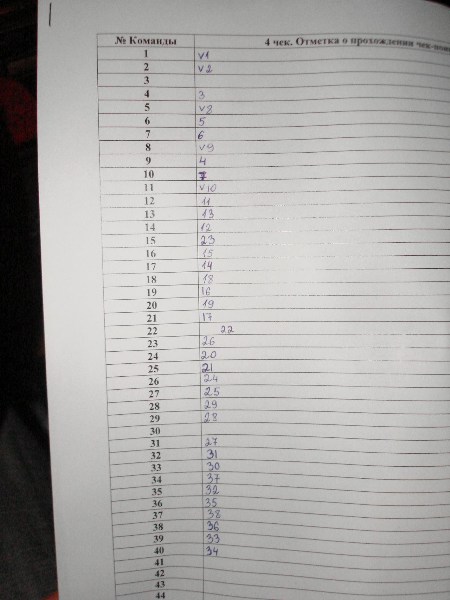 № Команды 4 чек. Отметка о прохождении чек-
1 v1
2 v2
3
4 3
5 v8
6 5
7 6
8 v9
9 4
10 7
11 v10
12 11
13 13
14 12
15 23
16 15
17 14
18 18
19 16
20 19
21 17
22 22
23 26
24 20
25 21
26 24
27 25
28 29
29 28
30
31 27
32 31
33 30
34 37
35 32
36 35
37 38
38 36
39 33
40 34
41
42
43
44